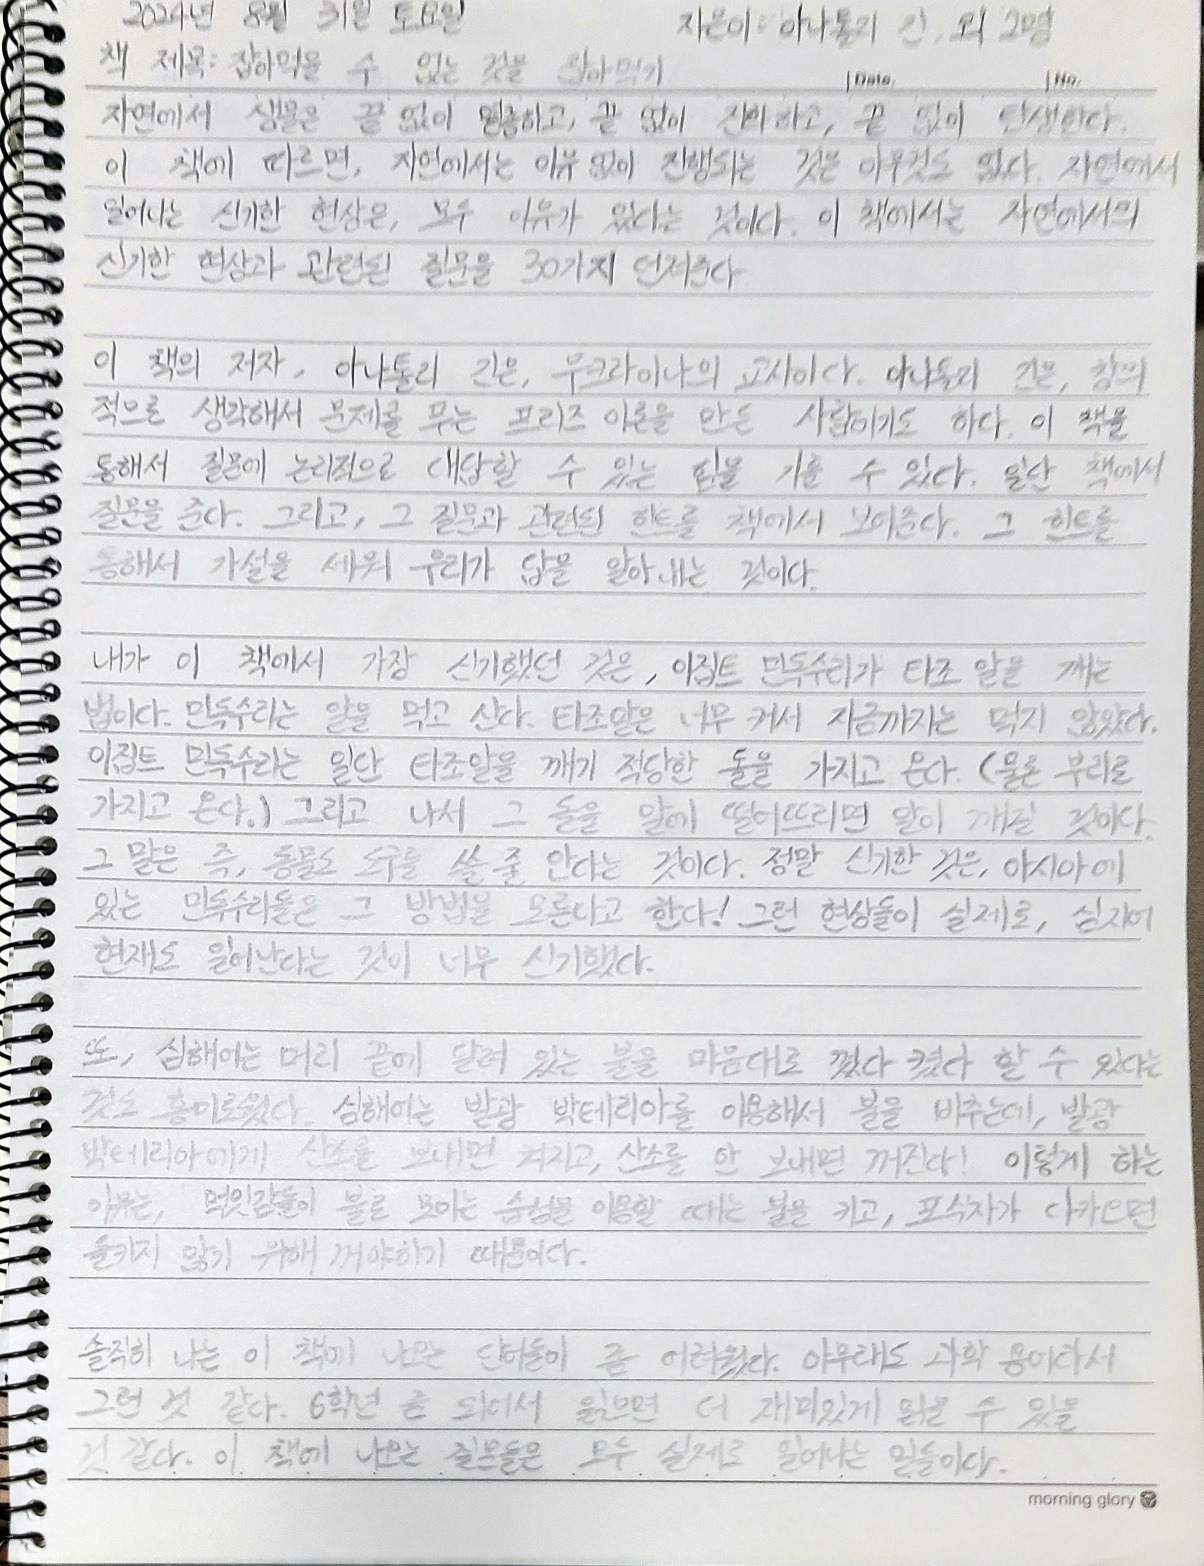 2024년 8월 31일 토요일 지은이: 아나톨리 긴, 외 2명
책 제목: 잡아먹을 수 없는 것을 잡아먹기
Date. No.
자연에서 생물은 끝 없이 멸종하고, 끝 없이 진화하고, 끝 없이 탄생한다.
이 책에 따르면, 자연에서는 이유 없이 진행되는 것은 아무것도 없다. 자연에서
일어나는 신기한 현상은, 모두 이유가 있다는 것이다. 이 책에서는 자연에서의
신기한 현상과 관련된 질문을 30가지 던져준다.
이 책의 저자, 아나톨리 긴은, 우크라이나의 교사이다. 아나톨리 긴은, 창의
적으로 생각해서 문제를 푸는 트리즈 이론을 만든 사람이기도 하다. 이 책을
통해서 질문에 논리적으로 대답할 수 있는 힘을 기를 수 있다. 일단 책에서
질문을 준다. 그리고, 그 질문과 관련된 힌트를 책에서 보여준다. 그 힌트를
통해서 가설을 세워 우리가 답을 알아내는 것이다.
내가 이 책에서 가장 신기했던 것은, 이집트 민독수리가 타조 알을 깨는
법이다. 민독수리는 알을 먹고 산다. 타조알은 너무 커서 지금까지는 먹지 않았다.
이집트 민독수리는 일단 타조알을 깨기 적당한 돌을 가지고 온다. (물론 부리로
가지고 온다.) 그리고 나서 그 돌을 알에 떨어뜨리면 알이 깨질 것이다.
그 말은 즉, 동물도 도구를 쓸 줄 안다는 것이다. 정말 신기한 것은, 아시아에
있는 민독수리들은 그 방법을 모른다고 한다! 그런 현상들이 실제로, 심지어
현재도 일어난다는 것이 너무 신기했다.
또, 심해어는 머리 끝에 달려 있는 불을 마음대로 껐다 켰다 할 수 있다는
것도 흥미로웠다. 심해어는 발광 박테리아를 이용해서 불을 비추는데, 발광
박테리아에게 산소를 보내면 켜지고, 산소를 안 보내면 꺼진다! 이렇게 하는
이유는, 먹잇감들이 불로 모이는 습성을 이용할 때는 불을 키고, 포식자가 다가오면
들키지 않기 위해 꺼야하기 때문이다.
솔직히 나는 이 책에 나오는 단어들이 좀 어려웠다. 아무래도 과학 용어다서
그런 것 같다. 6학년 쯤 되어서 읽으면 더 재미있게 읽을 수 있을
것 같다. 이 책에 나오는 질문들은 모두 실제로 일어나는 일들이다.
morning glory